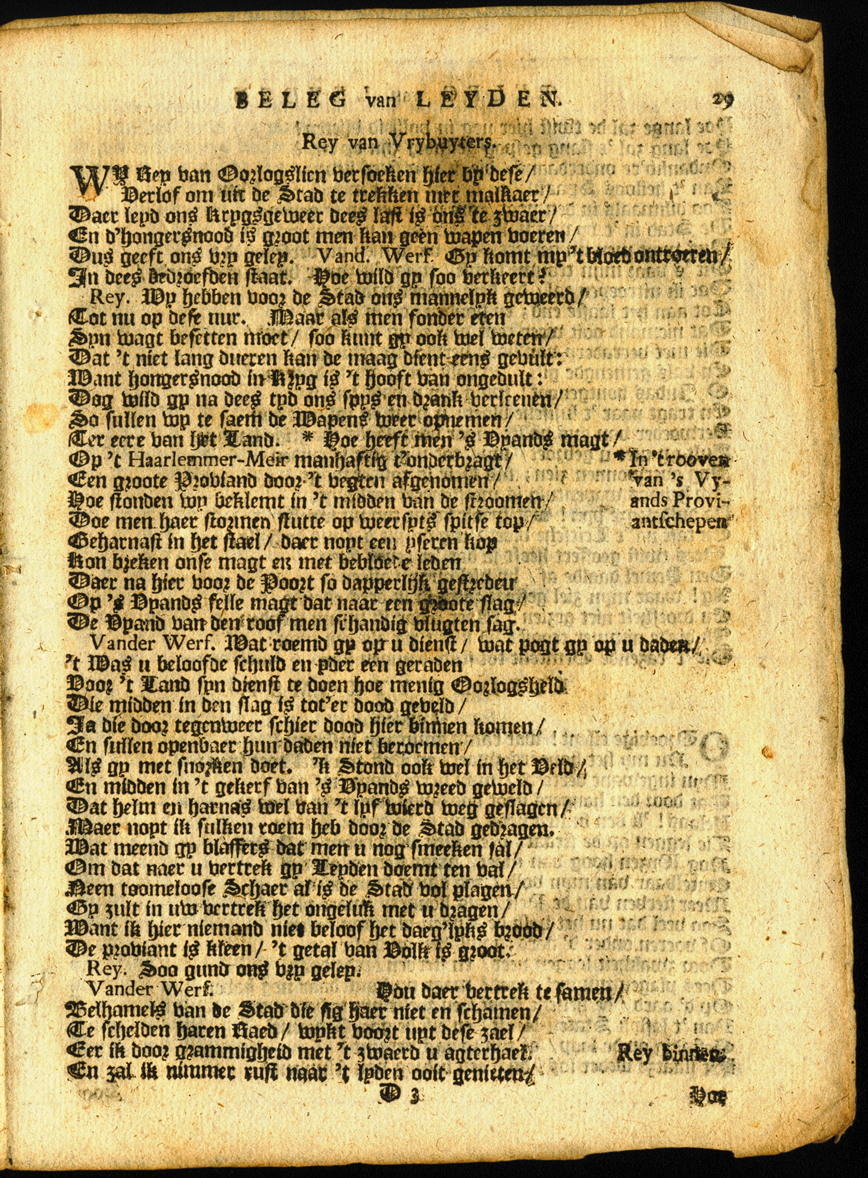 BELEG van LEYDEN. 29
Rey van Vrybuyters.
WY Rey van Oorlogslien versoeken hier by dese/
Verlof om uit de Stad te trekken met malkaer/
Daer leyd ons krygsgeweer dees last is ons te zwaer/
En d'hongersnood is groot men kan geen wapen voeren/
Dus geeft ons vry geley. Vand. Werf. Gy komt my 't bloed ontroeren/
In dees bedroefden staat. Hoe wild gy soo verkeert?
Rey. Wy hebben voor de Stad ons mannelyk geweerd/
Tot nu op dese uur. Maar als men sonder eten
Syn wagt besetten moet/ soo kunt gy ook wel weten/
Dat 't niet lang dueren kan de maag dient eens gevult:
Want hongersnood in Kryg is 't hooft van ongedult:
Dog wild gy na dees tyd ons spys en drank verleenen/
So sullen wy te saem de Wapens weer opnemen/
Ter eere van het Land. * Hoe heeft men 's Vyands magt/
Op 't Haarlemmer-Meir manhaftig t'onderbragt/ * In 't rooven
Een groote Proviand door 't vegten afgenomen/ van 's Vy-
Hoe stonden wy beklemt in 't midden van de stroomen/ ands Provi-
Doe men haer stormen stutte op weerspts spitse top/ antschepen
Geharnast in het stael/ daer noyt een yseren kop
Kon breken onse magt en met bebloede leden
Daer na hier voor de Poort so dapperlijk gestreden
Op 's Vyands felle magt dat naar een groote slag/
De Vyand van den roof men schandig vlugten sag.
Vander Werf. Wat roemd gy op u dienst/ wat pogt gy op u daden/
't Was u beloofde schuld en yder een geraden
Voor 't Land syn dienst te doen hoe menig Oorlogsheld
Die midden in den slag is tot'er dood geveld/
Ja die door tegenweer schier dood hier binnen komen/
En sullen openbaer hun daden niet beroemen/
Als gy met snorken doet. 'k Stond ook wel in het Veld/
En midden in 't gekerf van 's Vyands wreed geweld/
Dat helm en harnas wel van 't lyf wierd weg geslagen/
Maer noyt ik sulken roem heb door de Stad gedragen.
Wat meend gy blaffers dat men u nog smeeken sal/
Om dat naer u vertrek gy Leyden doemt ten val/
Neen toomeloose Schaer al is de Stad vol plagen/
Gy zult in uw vertrek het ongeluk met u dragen/
Want ik hier niemand niet beloof het daeg'lyks brood/
De proviant is kleen/ 't getal van Volk is groot.
Rey. Soo gund ons vry geley.
Vander Werf. Hou daer vertrek te samen/
Belhamels van de Stad die sig haer niet en schamen/
Te schelden haren Raed/ wykt voort uyt dese zael/
Eer ik door grammigheid met 't zwaerd u agterhael. Rey binnen.
En zal ik nimmer rust naar 't lyden ooit genieten/
D 3 Hoe